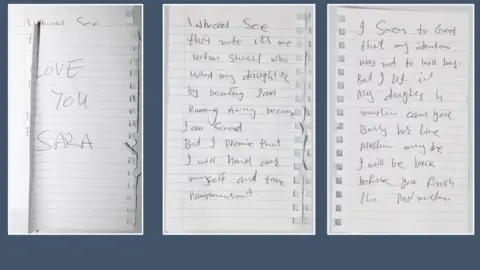 LOVE
YOU
SARA
I whoever see
this note its me
urfan sharif who
killed my daughter
by beating I am
Running Away because
I am scared
But I promise that
I will hand over
myself and take
Punishment
I swear to God
that my intention
was not to kill her.
But I lost it
My daughter is
muslim can you
Bury her like
Muslim may be
I will be back
before you finish
the Post mortem